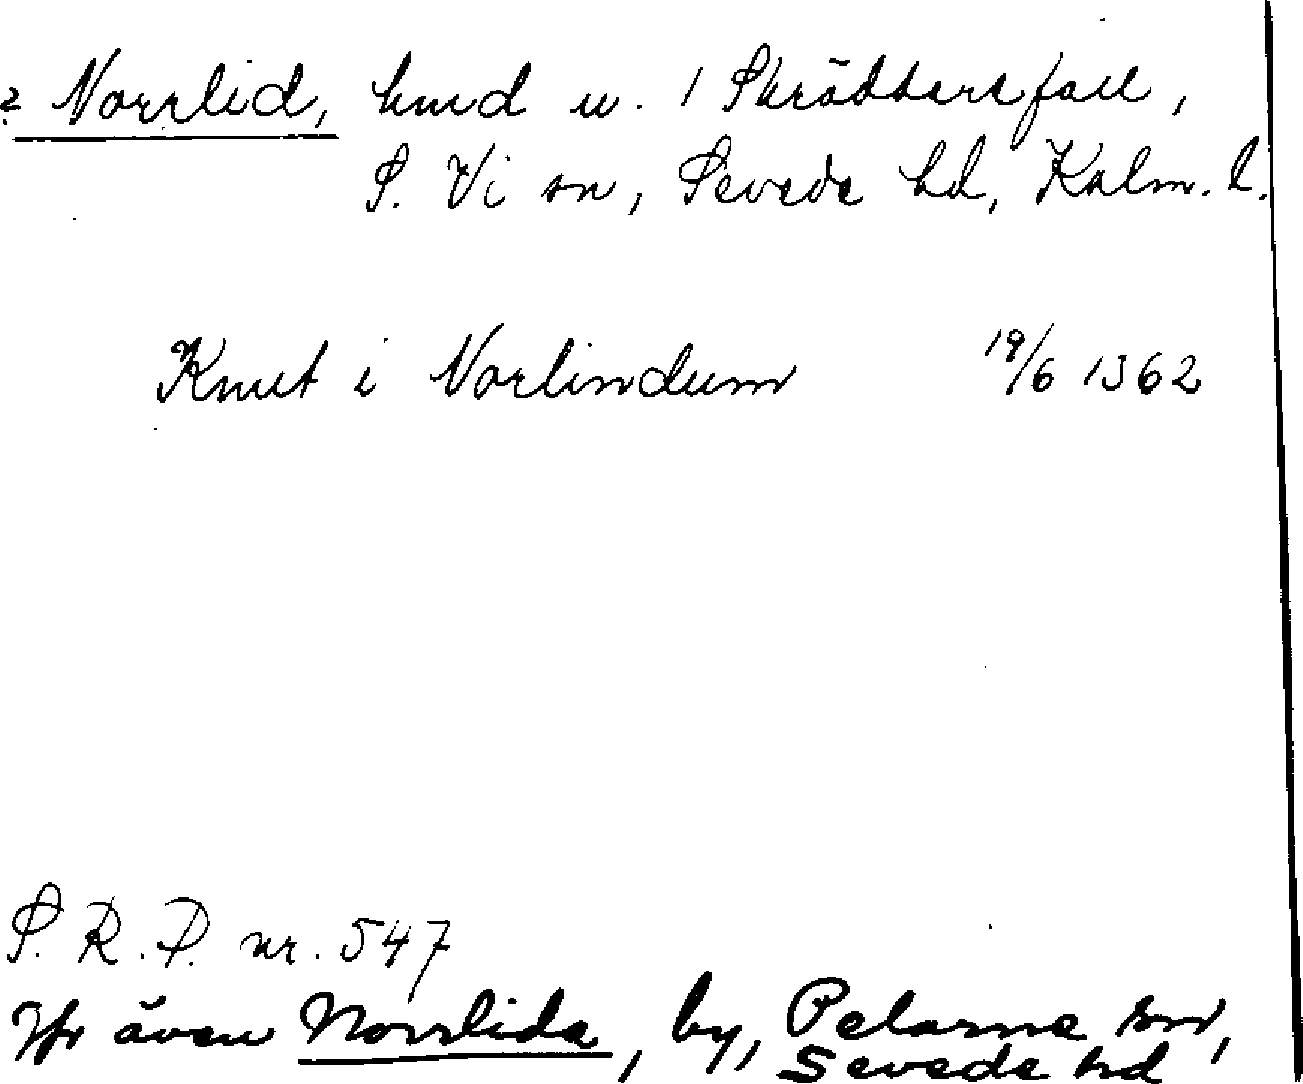 ? Norrlid, hmd u. 1 Skräddarefall,
S. Vi sn, Sevede hd, Kalm. l.
Knut i Norlindum 19/6 1362
S. R. P. nr. 547
Jfr även Norrlida, by, Pelarne sn,
Sevede hd